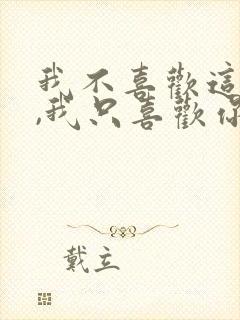 我不喜歡這
,我只喜歡你
戴立